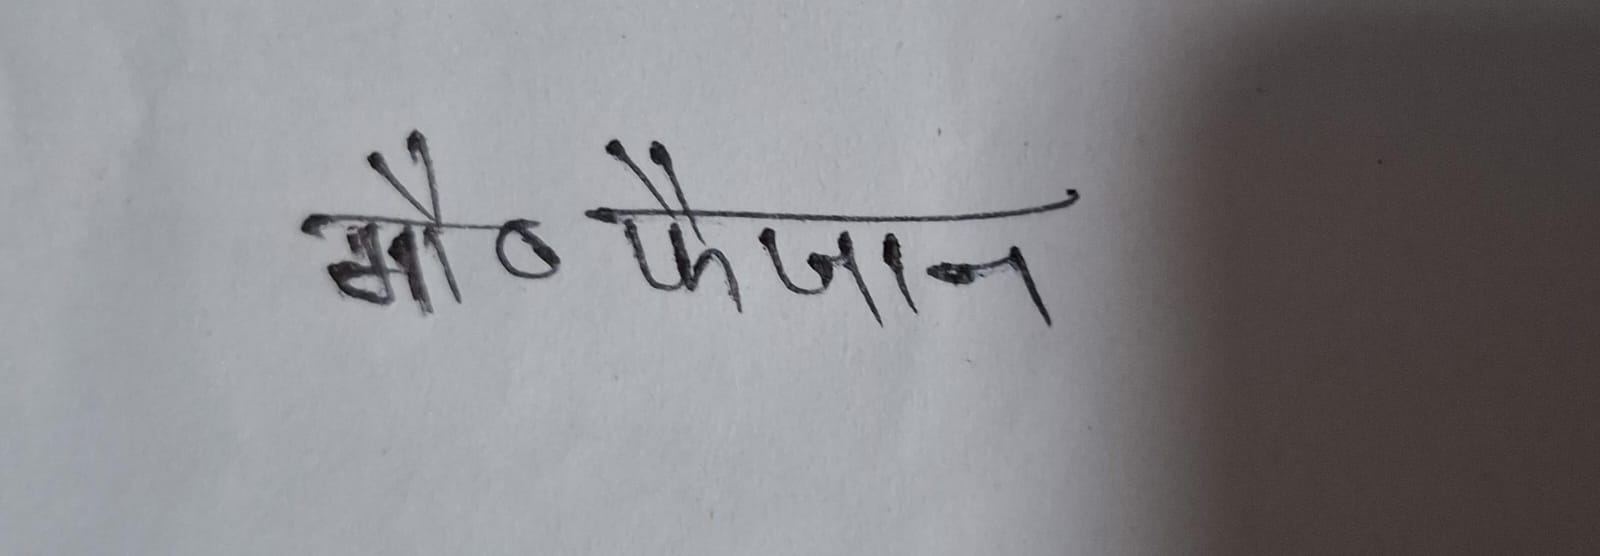 मौ० फैजान